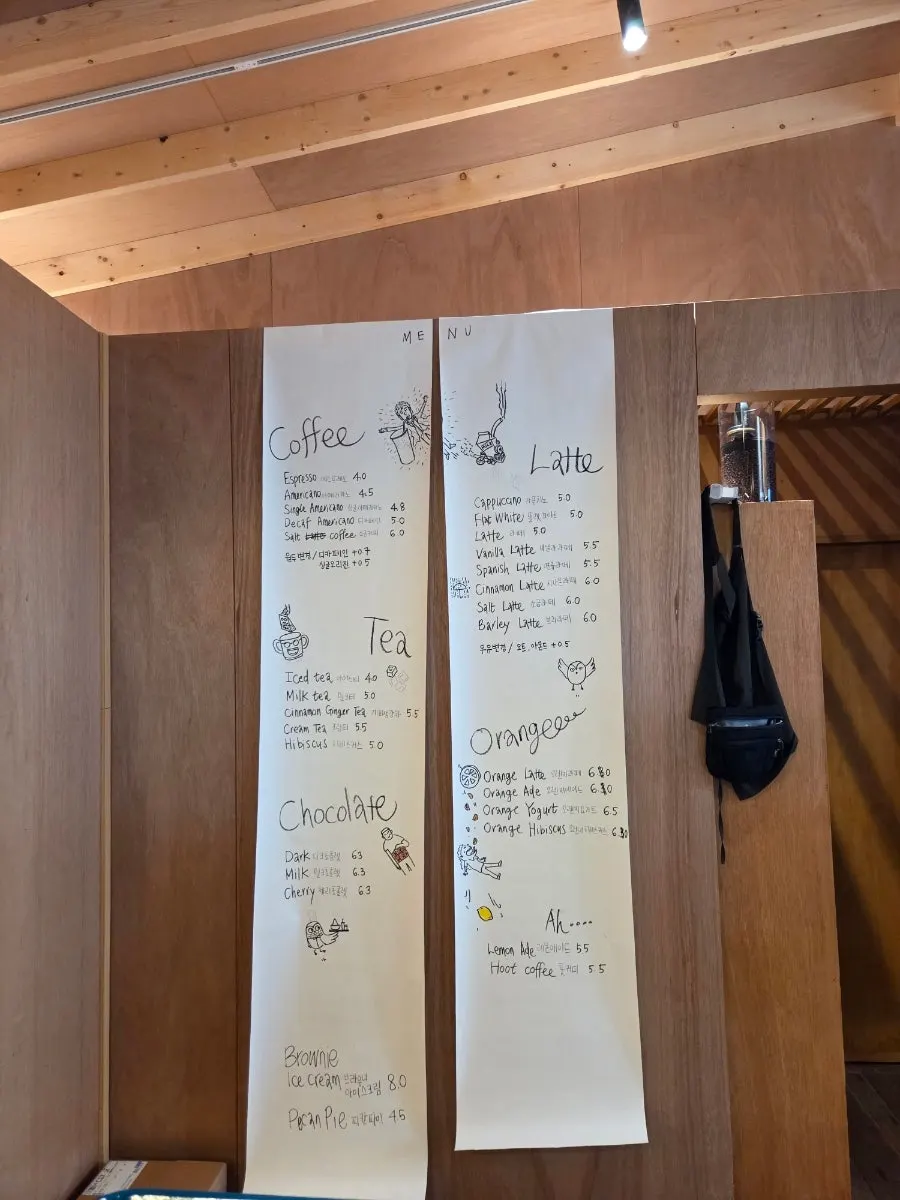 MENU
Coffee
Espresso 에스프레소 4.0
Americano 아메리카노 4.5
Single Americano 싱글아메리카노 4.8
Decaf Americano 디카페인 5.0
Salt coffee 소금커피 6.0
원두변경/디카페인 +0.7
싱글오리진 +0.5
Tea
Iced tea 아이스티 4.0
Milk tea 밀크티 5.0
Cinnamon Ginger Tea 5.5
Cream Tea 크림티 5.5
Hibiscus 히비스커스 5.0
Chocolate
Dark 다크초콜렛 6.3
Milk 밀크초콜렛 6.3
Cherry 체리초콜렛 6.3
Brownie
ice cream 브라우니 아이스크림 8.0
Pecan Pie 피칸파이 4.5
Latte
Cappuccino 카푸치노 5.0
Flat White 플랫화이트 5.0
Latte 라떼 5.0
Vanilla Latte 바닐라라떼 5.5
Spanish Latte 연유라떼 5.5
Cinnamon Latte 시나몬라떼 6.0
Salt Latte 소금라떼 6.0
Barley Latte 보리라떼 6.0
우유변경/ 오트, 아몬드 +0.5
Orangeee
Orange Latte 오렌지라떼 6.0
Orange Ade 오렌지에이드 6.0
Orange Yogurt 오렌지요거트 6.5
Orange Hibiscus 오렌지히비스커스 6.0
Ah....
Lemon Ade 레몬에이드 5.5
Hoot coffee 훗커피 5.5